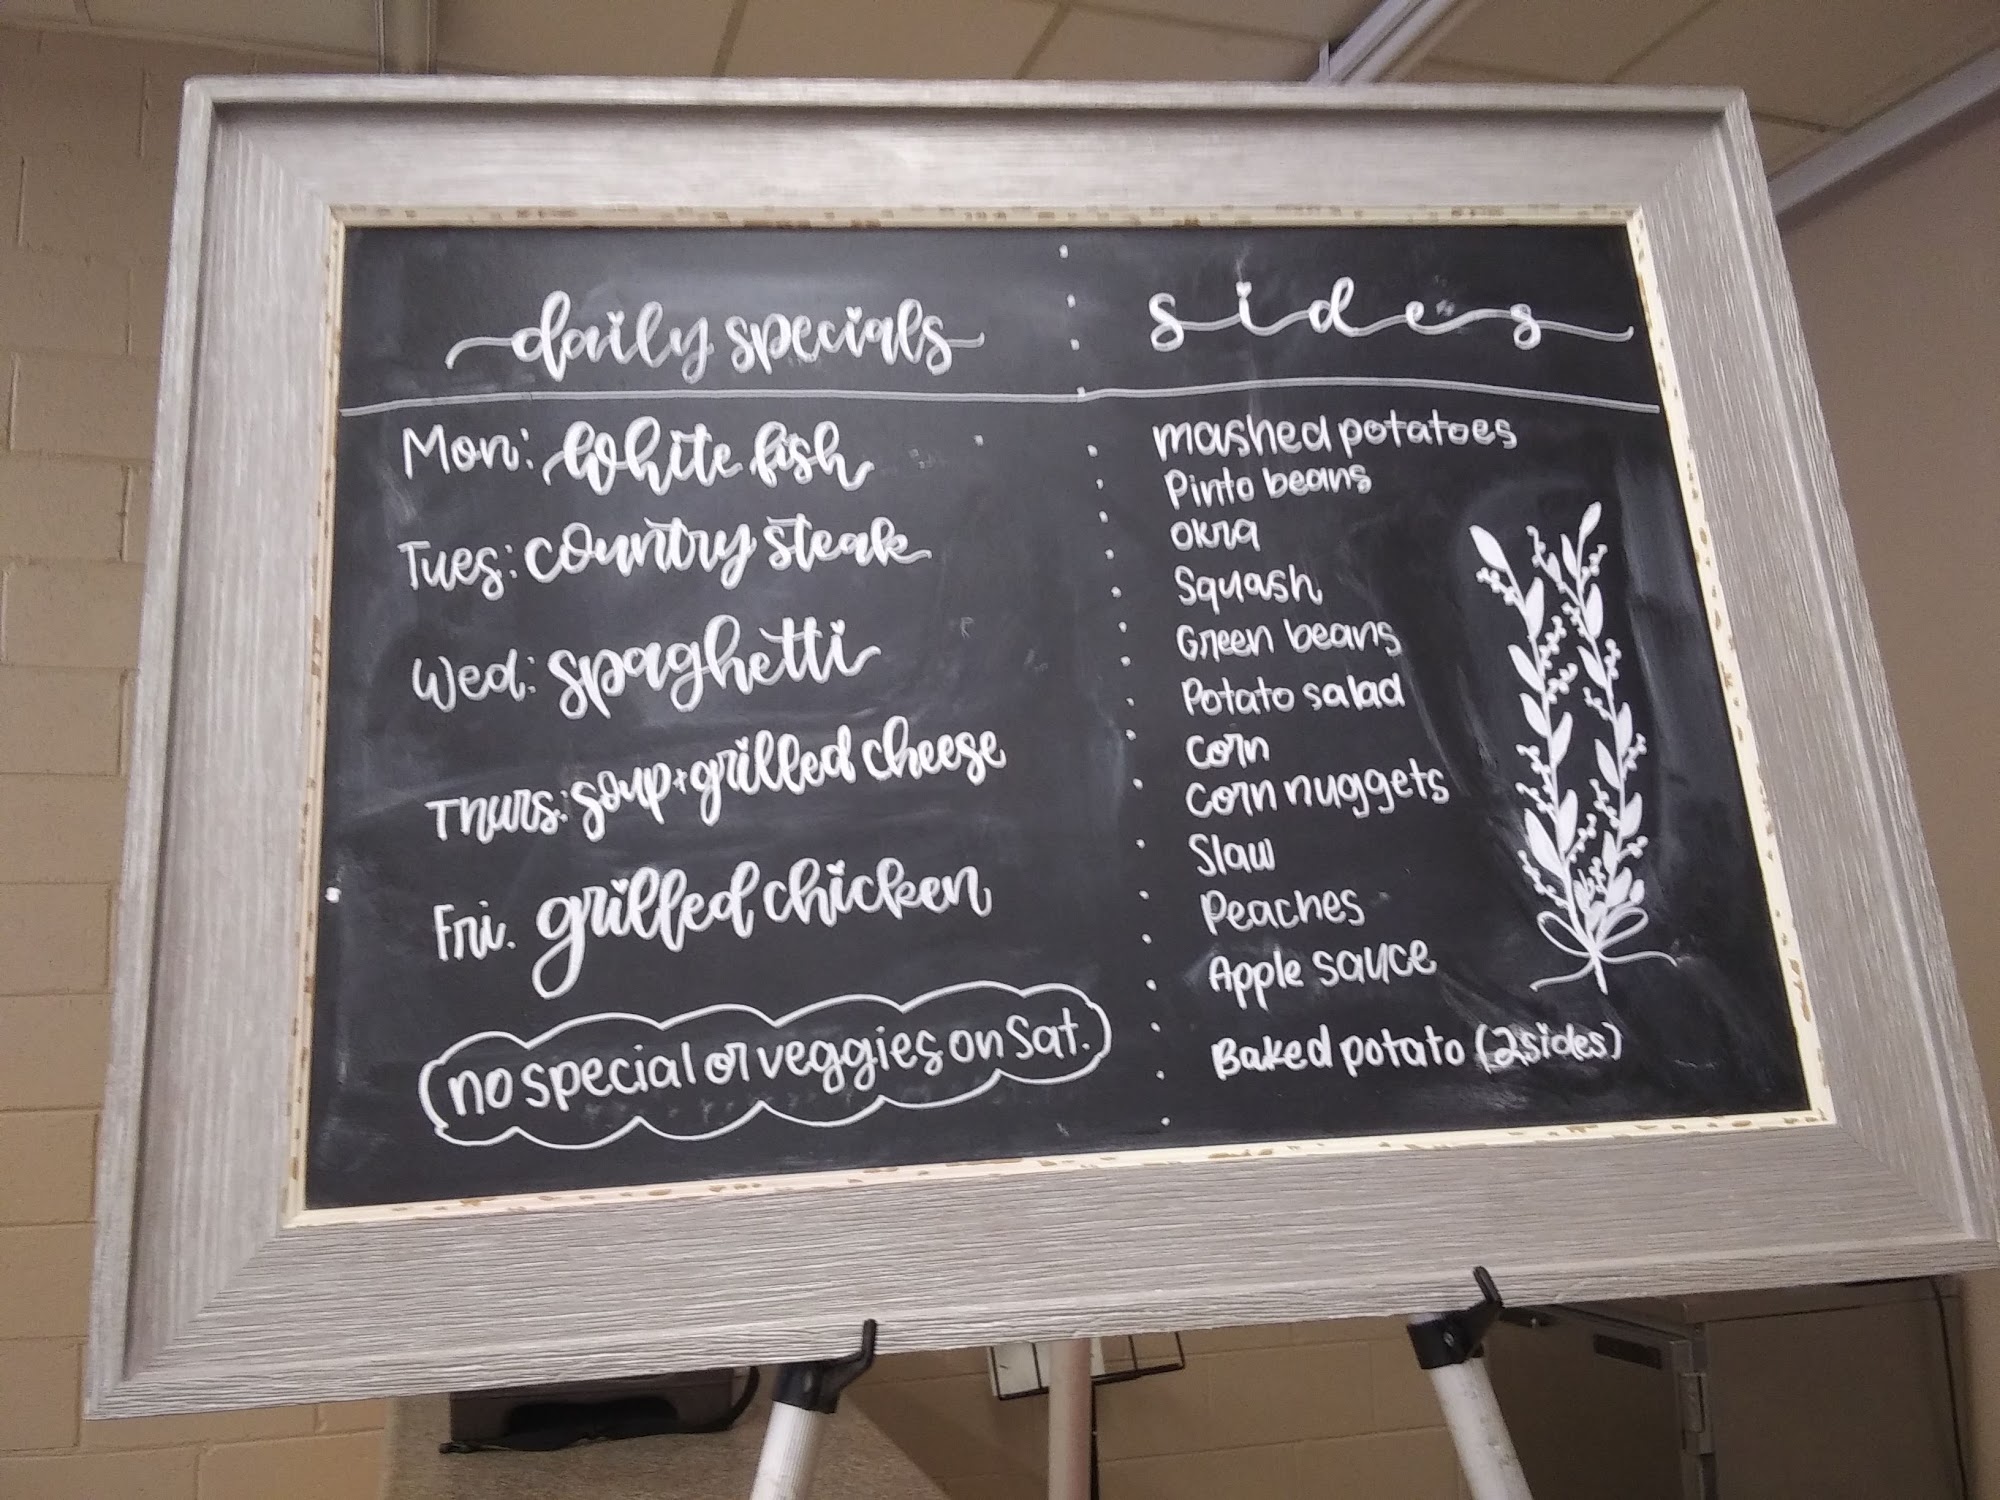 daily specials
Mon: White fish
Tues: country steak
Wed: spaghetti
Thurs: soup + grilled cheese
Fri. grilled chicken
no special or veggies on Sat.
sides
mashed potatoes
Pinto beans
Okra
Squash
Green beans
Potato salad
Corn
Corn nuggets
Slaw
Peaches
Apple sauce
Baked potato (2 sides)